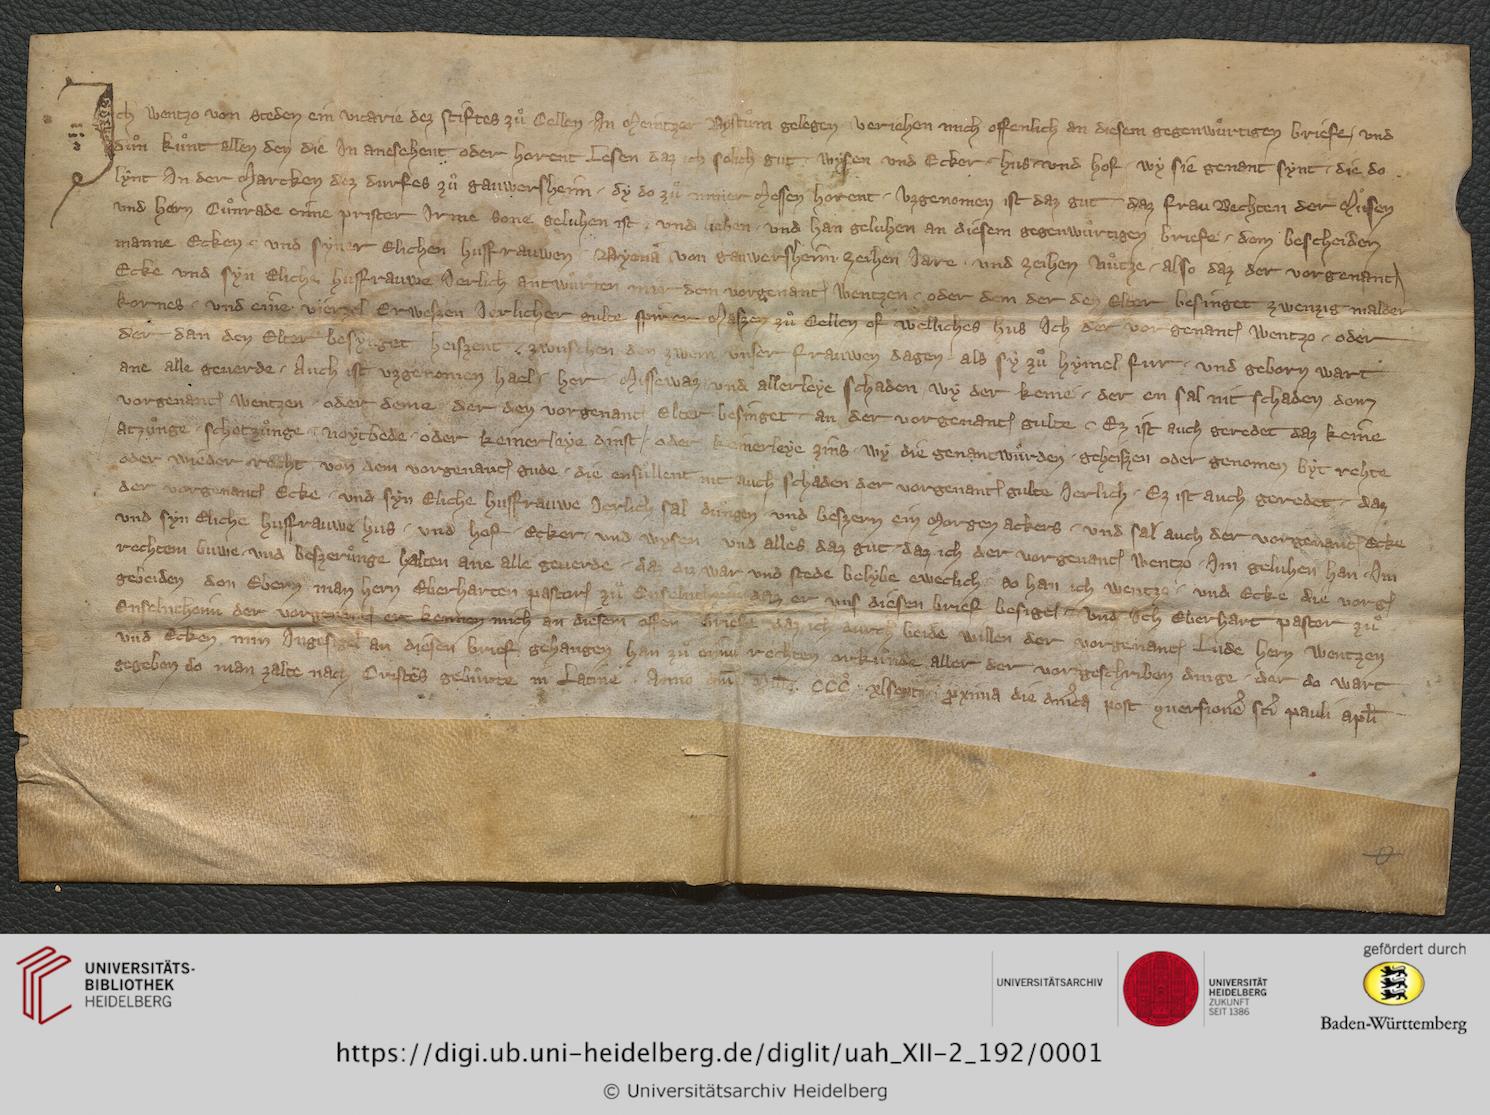 Ich Wentzo von Steden ein vicarie dez stiftes zů Cellen In Meintzer Bystům gelegen veriehen mich offenlich an diesem gegenwůrtigen briefe, vnd
důn kůnt allen den die In anesehent oder horent Lesen daz ich solich gut wysen vnd Ecker hus vnd hof wy sie genant synt die do
lynt In der Marcken dez durfes zů gauwersheim dy do zů miner Messen horent vzgenomen ist daz gut daz frau Bechten der
vnd hern Cůnrade eime prister Irme sone geluhen ist vnd han geluhen an diesem gegenwůrtigen briefe dem bescheiden
manne Ecken vnd syner Elichen husfrauwen von gauwersheim zeihen Jare vnd zeihen Nůtze also daz der vorgenant
Ecke vnd syn Eliche husfrauwe Jerlich antwůrten mir dem vorgenant Wentzen oder dem der den Elter besinget zwenzig malder
kornes vnd eine vierzel Erweszen Jerlicher gulte zů Cellen of welliches hus Ich der vorgenant Wentzo oder
der dan den Elter besynget heiszent zwuschen den zwein vnser frauwen dagen als sy zů hymel fur vnd geborn wart
ane alle geuerde Auch ist vzgenomen hael her Missewaz vnd allerleye schaden wy der keme der en sal nit schaden dem
vorgenant Wentzen oder deme der den vorgenant Elter besinget an der vorgenant gulte Ez ist auch geredet daz keine
atzunge schetzůnge noytbede oder keinerleye dinst oder keinerleye zins wy die genant wůrden geheiszen oder genomen byt rehte
oder wieder recht von dem vorgenant gude die ensullent nit auch schaden der vorgenant gulte Jerlich Ez ist auch geredet daz
der vorgenant Ecke vnd syn Eliche husfrauwe Jerlich sal dungen vnd beszern ein Morgen ackers vnd sal auch der vorgenant Ecke
vnd syn Eliche husfrauwe hus vnd hof Ecker vnd wysen vnd alles daz gut daz ich der vorgenant Wentzo Im geluhen han Im
rechtem buwe vnd beszerůnge halten ane alle geuerde daz diz war vnd stede belybe eweclich so han ich Wentzo vnd Ecke die vorg
gebeiden den Ebern man hern Eberharten pastor zů daz er vns diesen brief besigel vnd Ich Eberhart pastor zů
der vorgenant erkennen mich an diesem offen briefe daz ich durch beide willen der vorgenant Lude hern Wentzen
vnd Ecken min Ingesigel an diesen brief gehangen han zů eime rechten orkůnde aller der vorgeschriben dinge der do wart
gegeben do man zalte nach Cristes gebůrte in Latine Anno dni CCC proxima die dnica post conuersione sci pauli apli
UNIVERSITÄTS-
BIBLIOTHEK
HEIDELBERG
UNIVERSITÄTSARCHIV
UNIVERSITÄT
HEIDELBERG
ZUKUNFT
SEIT 1386
gefördert durch
Baden-Württemberg
https://digi.ub.uni-heidelberg.de/diglit/uah_XII-2_192/0001
© Universitätsarchiv Heidelberg